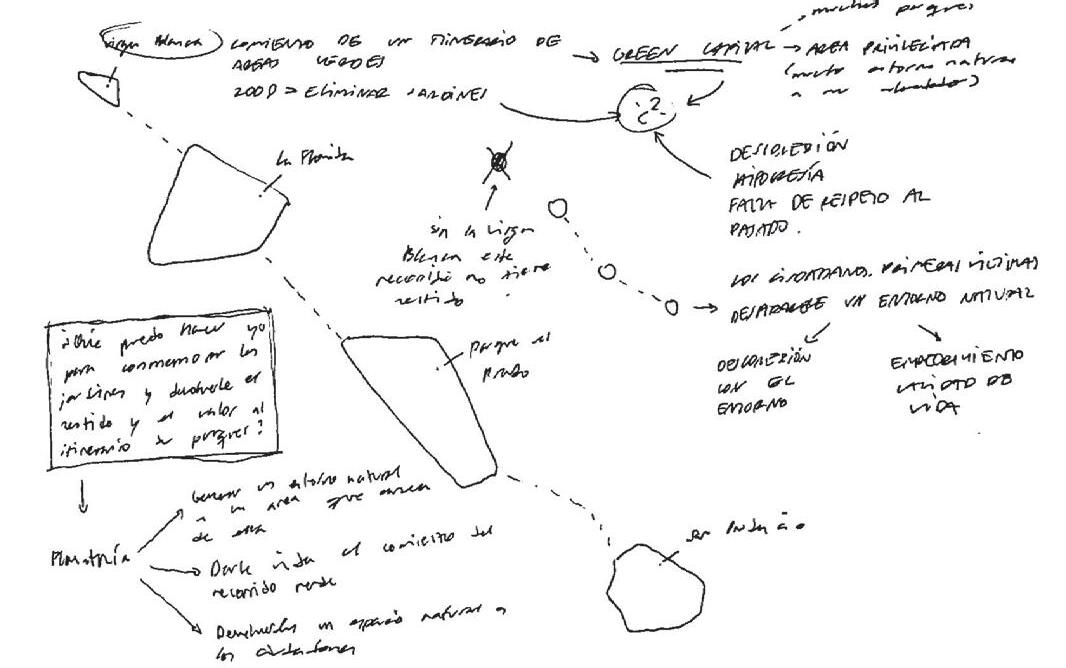 Virgen Blanca
COMIENZO DE UN ITINERARIO DE
AREAS VERDES
2008 = ELIMINAR JARDINES
GREEN CAPITAL
muchos parques
AREA PRIVILEGIADA
(mucho entorno natural
a su alrededor)
¿?
DESCONEXIÓN
HIPOCRESÍA
FALTA DE RESPETO AL
PASADO.
La Florida
sin la Virgen
Blanca este
recorrido no tiene
sentido.
LOS CIUDADANOS PRIMERAS VÍCTIMAS
DESAPARECE UN ENTORNO NATURAL
DESCONEXIÓN
CON EL
ENTORNO
EMPEORAMIENTO
CALIDAD DE
VIDA
Parque el
Prado
¿Qué puedo hacer yo
para conmemorar los
jardines y devolverle el
sentido y el valor al
itinerario de parques?
Plantaría
Generar un entorno natural
a un area que carece
de esta
Darle vida al comienzo del
recorrido verde
Devolverles un espacio natural a
los ciudadanos
San Prudencio